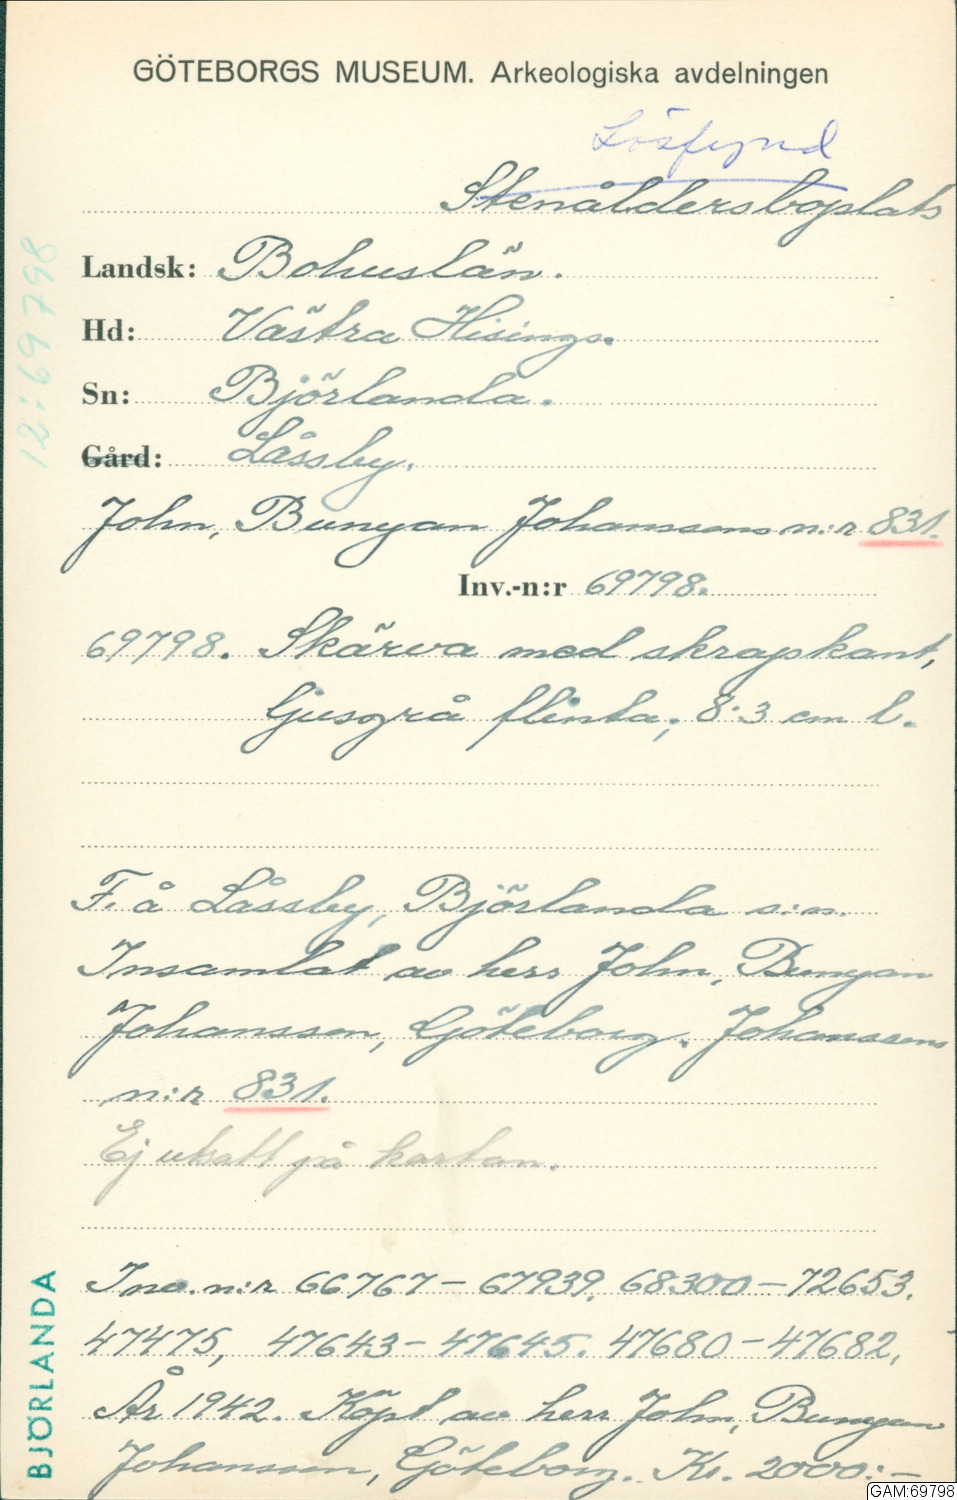 GÖTEBORGS MUSEUM. Arkeologiska avdelningen
Lösfynd
Stenåldersboplats
Landsk: Bohuslän.
Hd: Västra Hisings.
Sn: Björlanda.
Gård: Låssby.
John, Bunyan Johanssons n:r 831.
Inv.-n:r 69798.
69798. Skärva med skrapkant,
ljusgrå flinta; 8.3 cm l.
F. å Låssby, Björlanda s:n.
Insamlat av herr John, Bunyan
Johansson, Göteborg. Johanssons
n:r 831.
Ej utsatt på kartan.
Inv. n:r 66767-67939, 68300-72653.
47475, 47643-47645. 47680-47682,
År 1942. Köpt av herr John, Bunyan
Johansson, Göteborg. Kr. 2000:-
12:69798
BJÖRLANDA
GAM:69798